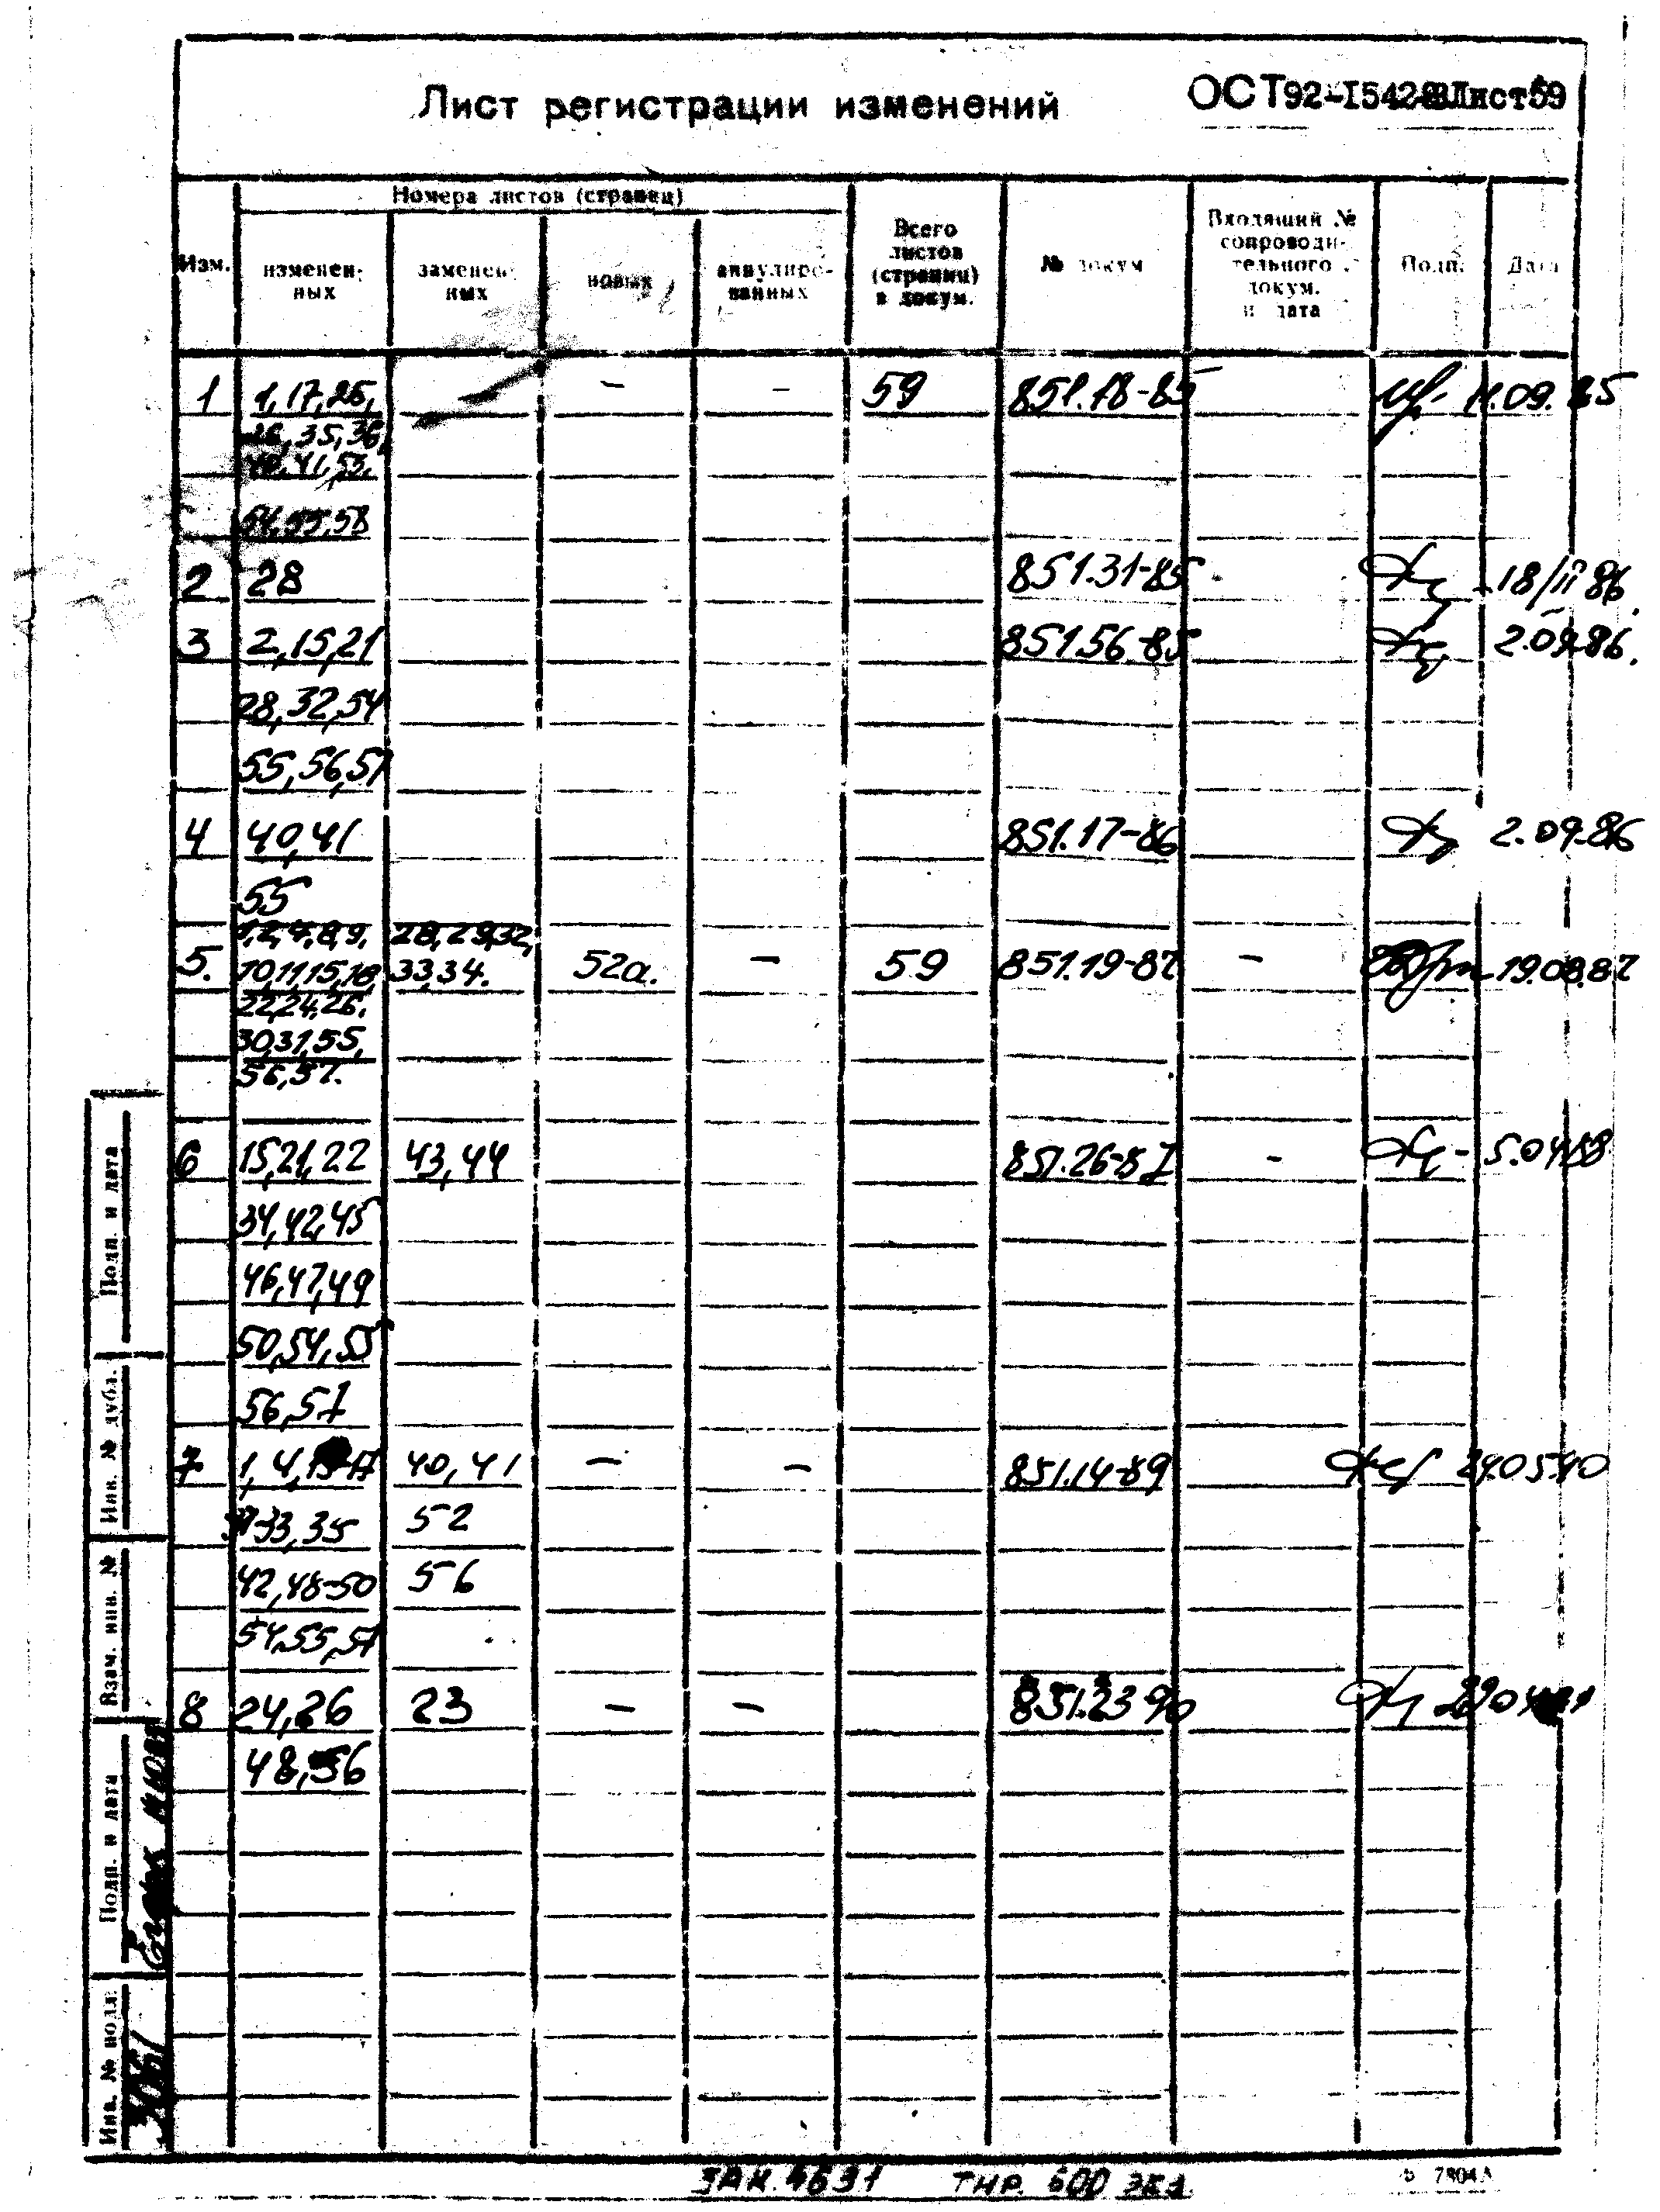 Лист регистрации изменений
Лист 59
Номера листов (страниц)
Изм.
изменен-
ных
заменен-
ных
новых
аннулиро-
ванных
Всего
листов
(страниц)
в докум.
№ докум
Входящий №
сопроводи-
тельного
докум.
и дата
Подп.
Дата
1 1,17,25, - - 59 851.18-85 11.09.85
26,35,36,
40,41,53,
54,55,58
2 28 851.31-85 18/II 86
3 2,15,21 851.56-85 2.09.86.
28,32,54
55,56,57
4 40,41 851.17-86 2.09.86
55
1,2,4,8,9, 28,29,32,
5. 10,11,15,18, 33,34. 52а. - 59 851.19-87 - 19.08.87
22,24,26.
30,31,55,
56,57.
6 15,21,22 43,44 851.26-87 - 5.04.88
34,42,45
46,47,49
50,54,55
56,57
7 1,4, 40,41 - - 851.14-89
33,35 52
42,48-50 56
54,55,57
8 24,26 23 - - 851.23-90
48,56
Подп. и дата
Инв. № дубл.
Взам. инв. №
Подп. и дата
Инв. № подл.
ЗАК. 4631 ТИР. 600 ЭКЗ
7804А